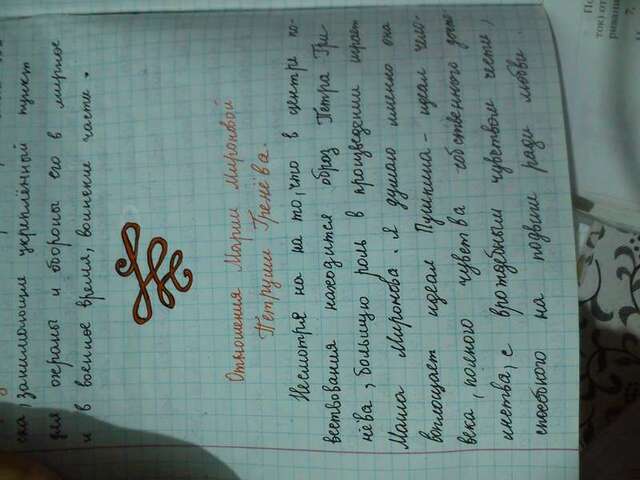 ска, занимающие укреплённый пункт
для охраны и обороны его в мирное
и в военное время, воинские части.
Отношения Марии Мироновой
Петруши Гренёва.
Несмотря на на то, что в центре по-
вествования находится образ Петра Гри-
нёва, большую роль в произведении играет
Маша Миронова. Я думаю именно она
воплощает идеал Пушкина - идеал чело-
века, полного чувства собственного досто-
инства, с врождебным чувством чести,
способного на подвиги ради любви.
По
ток) от
7.